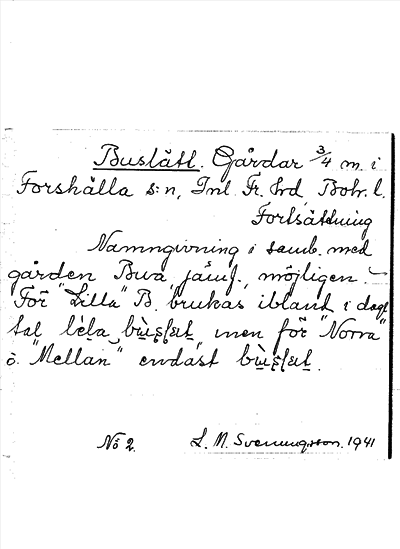 Buslätt. Gårdar 3/4 m. i
Forshälla s:n, Inl. Fr. hrd, Boh. l.
Fortsättning
Namngivning i samb. med
gården Bua, jämf., möjligen. –
För "Lilla" B. brukas ibland i dagl.
tal men för "Norra"
o. "Mellan" endast
No 2. L. M. Svenungsson. 1941